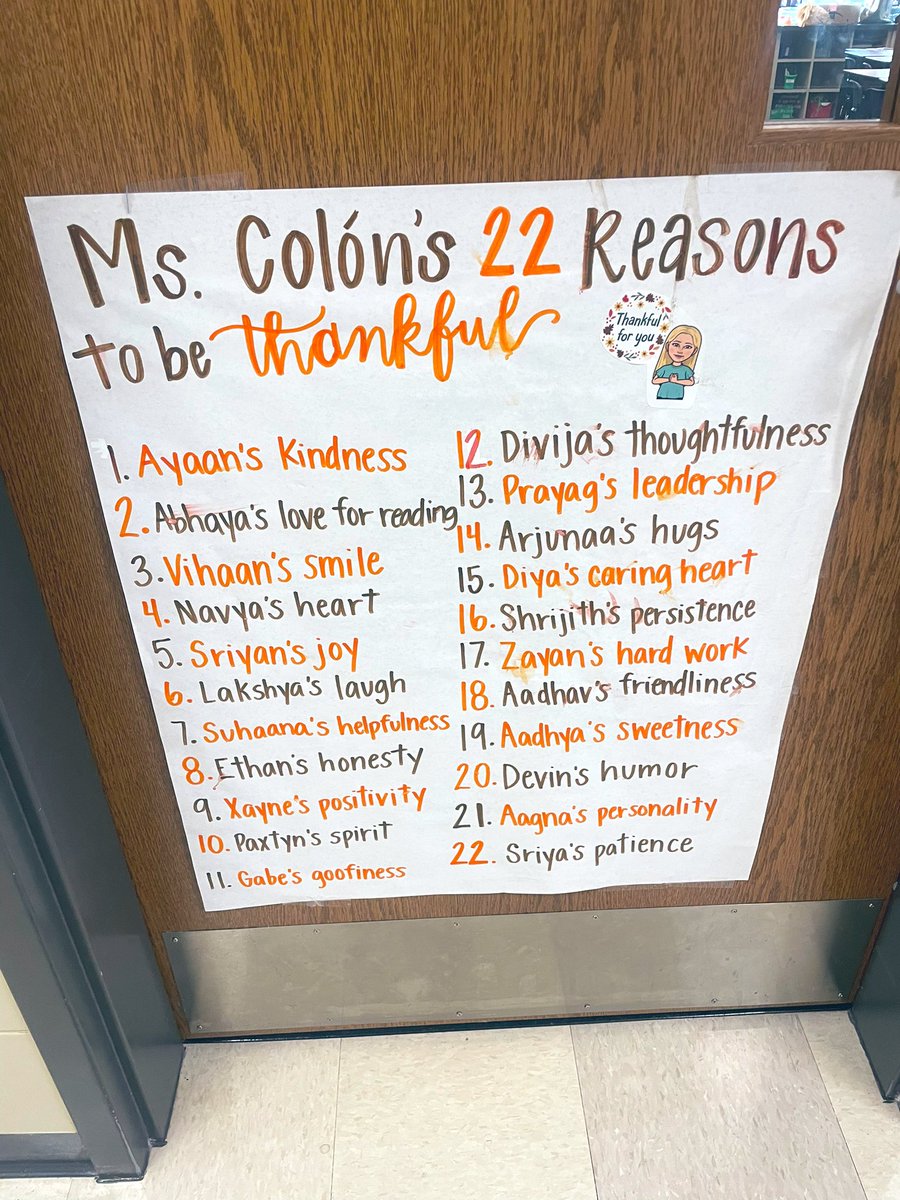 Ms. Colón's 22 Reasons
to be thankful
Thankful
for you
1. Ayaan's Kindness
2. Abhaya's love for reading
3. Vihaan's smile
4. Navya's heart
5. Sriyan's joy
6. Lakshya's laugh
7. Suhaana's helpfulness
8. Ethan's honesty
9. Xayne's positivity
10. Paxtyn's spirit
11. Gabe's goofiness
12. Divija's thoughtfulness
13. Prayag's leadership
14. Arjunaa's hugs
15. Diya's caring heart
16. Shrijith's persistence
17. Zayan's hard work
18. Aadhav's friendliness
19. Aadhya's sweetness
20. Devin's humor
21. Aagna's personality
22. Sriya's patience